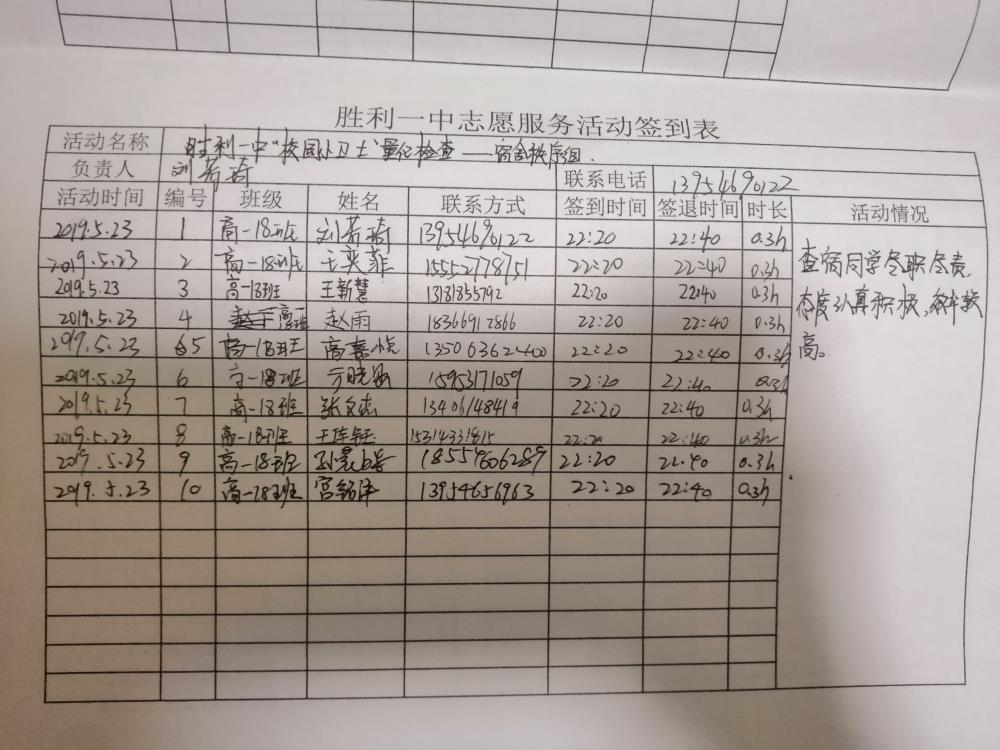 胜利一中志愿服务活动签到表
活动名称 胜利一中“校园小卫士”量化检查——宿舍秩序组.
负责人 刘若琦 联系电话 13954690122
活动时间 编号 班级 姓名 联系方式 签到时间 签退时间 时长 活动情况
2019.5.23 1 高一18班 刘若琦 13954690122 22:20 22:40 0.3h
2019.5.23 2 高一18班 王奕菲 15552778751 22:20 22:40 0.3h
2019.5.23 3 高一18班 王新慧 13181835792 22:20 22:40 0.3h
2019.5.23 4 赵雨 18366912866 22:20 22:40 0.3h
2019.5.23 5 高一18班 高嘉悦 13506362400 22:20 22:40 0.3h
2019.5.23 6 高一18班 15953171059 22:20 22:40 0.3h
2019.5.23 7 高一18班 张文志 13406148419 22:20 22:40 0.3h
2019.5.23 8 高一18班 15314331815 22:20 22:40 0.3h
2019.5.23 9 高一18班 18554606289 22:20 22:40 0.3h
2019.5.23 10 高一18班 宫铭泽 13954656963 22:20 22:40 0.3h
查宿同学尽职尽责,
态度认真积极,效率较
高。